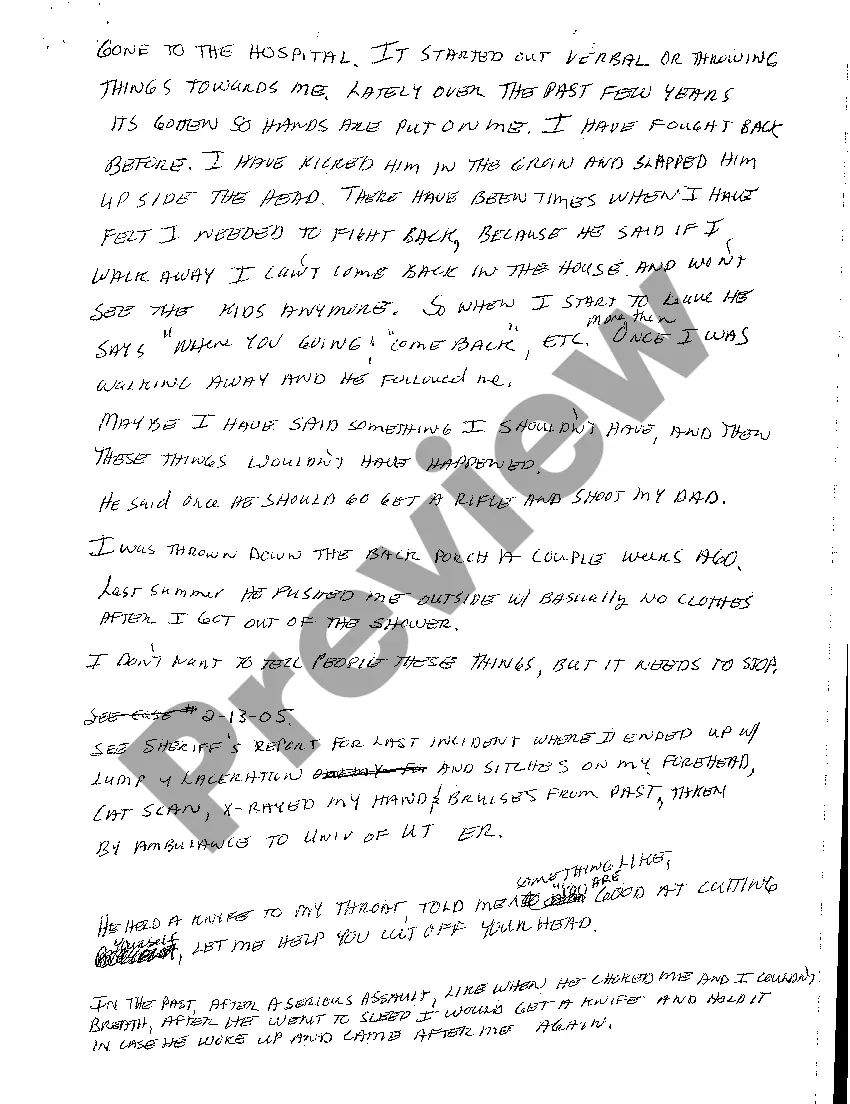 GONE TO THE HOSPITAL. IT STARTED OUT VERBAL OR THROWING
THINGS TOWARDS ME. LATELY OVER THE PAST FEW YEARS
ITS GOTTEN SO HANDS ARE PUT ON ME. I HAVE FOUGHT BACK
BEFORE. I HAVE KICKED HIM IN THE GROIN AND SLAPPED HIM
UP SIDE THE HEAD. THERE HAVE BEEN TIMES WHEN I HAVE
FELT I NEEDED TO FIGHT BACK, BECAUSE HE SAID IF I
WALK AWAY I CAN'T COME BACK IN THE HOUSE AND WON'T
SEE THE KIDS ANYMORE. SO WHEN I START TO Leave HE
SAYS "WHERE YOU GOING", "COME BACK", ETC. More then ONCE I WAS
WALKING AWAY AND HE Followed me.
MAYBE I HAVE SAID SOMETHING I SHOULDN'T HAVE, AND THEN
THESE THINGS WOULDN'T HAVE HAPPENED.
HE Said once HE SHOULD GO GET A RIFLE AND SHOOT MY DAD.
I WAS THROWN DOWN THE BACK PORCH A COUPLE WEEKS AGO.
Last Summer HE PUSHED ME OUTSIDE W/ BASICALLY NO CLOTHES
AFTER I GOT OUT OF THE SHOWER.
I DON'T WANT TO TELL PEOPLE THESE THINGS, BUT IT NEEDS TO STOP.
SEE CASE # 2-13-05.
SEE SHERIFF'S REPORT FOR LAST INCIDENT WHERE I ENDED UP W/
LUMP & LACERATION AND SITCHES ON MY FOREHEAD,
CAT SCAN, X-RAYED MY HAND & BRUISES FROM PAST, TAKEN
BY AMBULANCE TO UNIV OF UT ER.
SOMETHING LIKE,
HE HELD A KNIFE TO MY THROAT, TOLD ME "YOU ARE GOOD AT CUTTING
yourself, LET ME HELP YOU CUT OFF YOUR HEAD.
IN THE PAST, AFTER A SERIOUS ASSAULT, LIKE WHEN HE CHOKED ME AND I COULDN'T
BREATH, AFTER HE WENT TO SLEEP I WOULD GET A KNIFE AND HOLD IT
IN CASE HE WOKE UP AND CAME AFTER ME AGAIN.
Preview